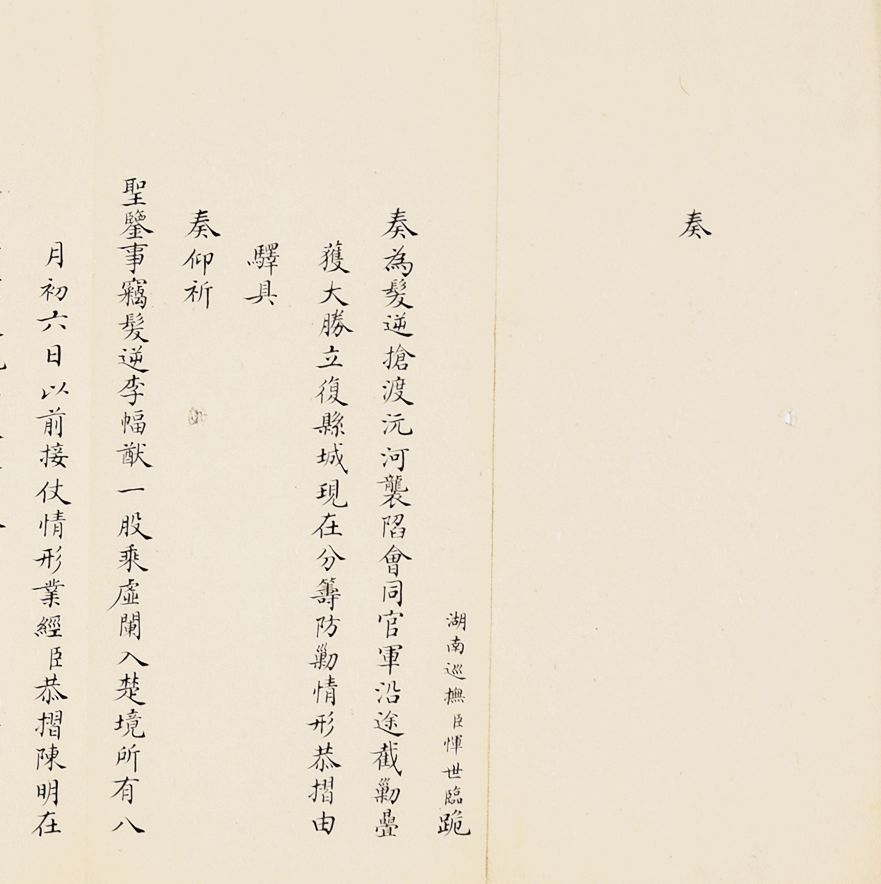 奏
湖南巡撫臣惲世臨跪
奏為髮逆搶渡沅河襲陷會同官軍沿途截勦疊
獲大勝立復縣城現在分籌防勦情形恭摺由
驛具
奏仰祈
聖鑒事竊髮逆李幅猷一股乘虛闌入楚境所有八
月初六日以前接仗情形業經臣恭摺陳明在